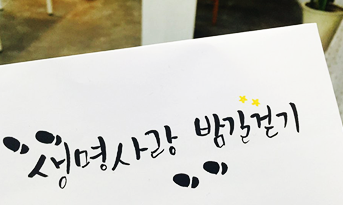 생명사랑 밤길걷기